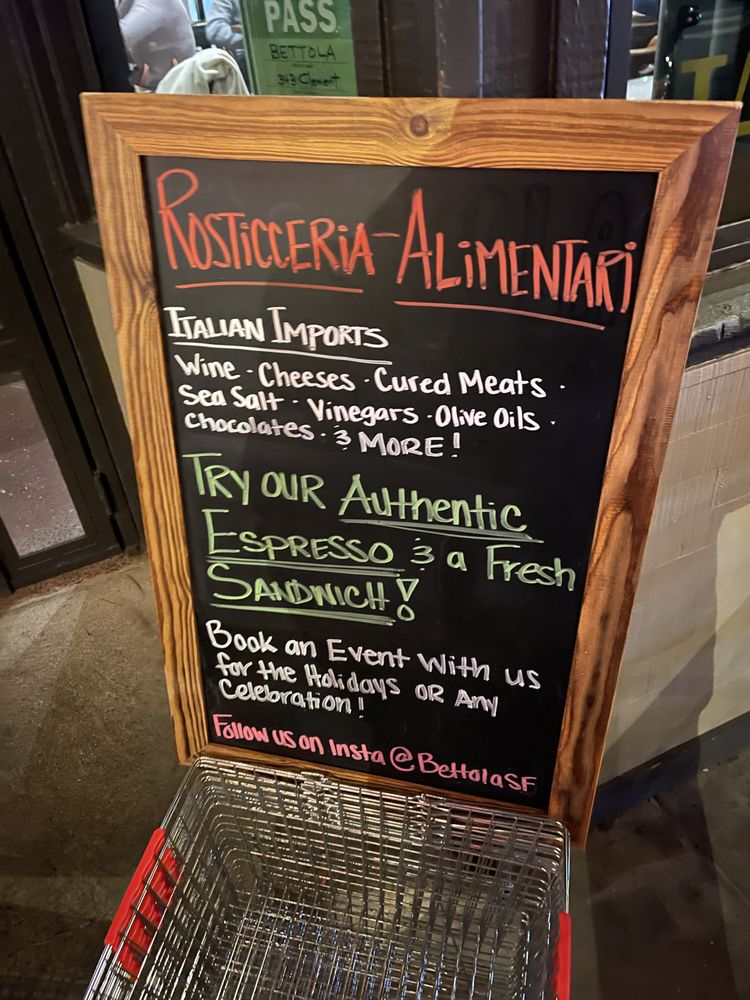 PASS
BETTOLA
343 Clement
ROSTICCERIA-ALIMENTARI
ITALIAN IMPORTS
Wine · Cheeses · Cured Meats ·
Sea Salt · Vinegars · Olive Oils ·
Chocolates · & MORE!
TRY OUR Authentic
ESPRESSO & a Fresh
SANDWICH!
Book an Event With us
for the Holidays OR Any
Celebration!
Follow us on Insta @BettolaSF